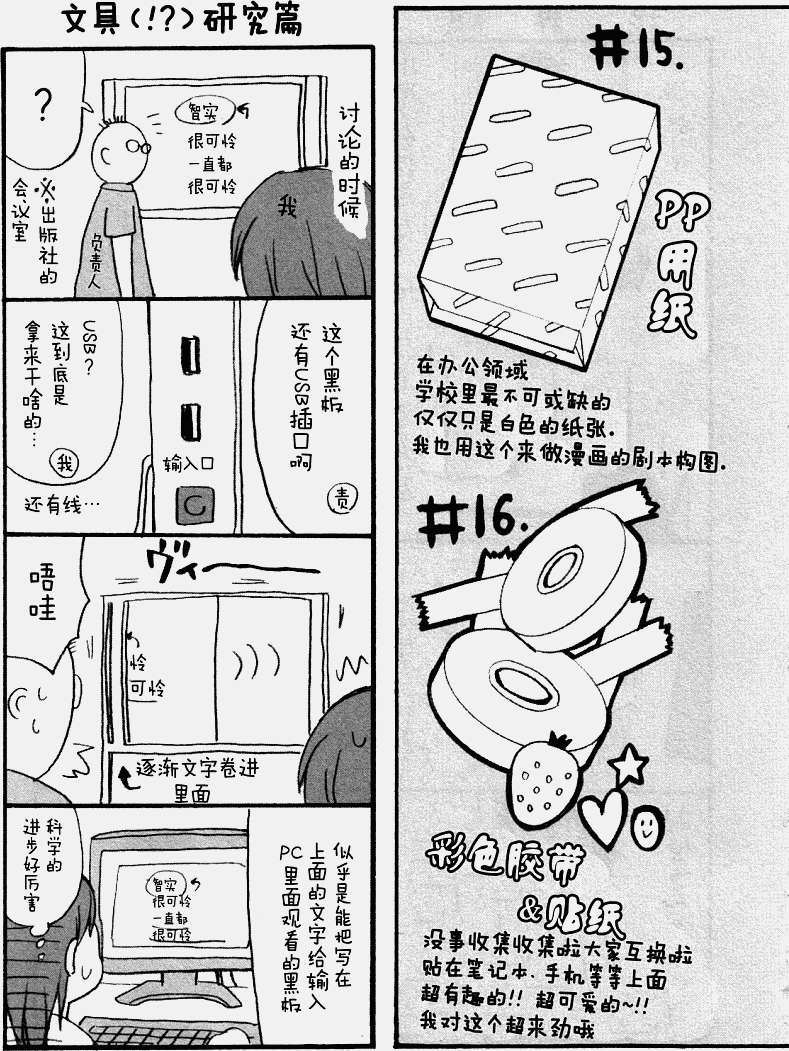 文具(!?)研究篇
讨论的时候
智实
很可怜
一直都
很可怜
我
?
负责人
※出版社的
会议室
这个黑板
还有USB插口啊
责
输入口
USB?
这到底是
拿来干啥的…
我
还有线…
ヴィー
唔哇
怜
可怜
逐渐文字卷进
里面
似乎是能把写在
上面的文字给输入
PC里面观看的黑板
智实
很可怜
一直都
很可怜
科学的
进步好厉害
#15.
PP用纸
在办公领域
学校里最不可或缺的
仅仅只是白色的纸张.
我也用这个来做漫画的剧本构图.
#16.
彩色胶带
&贴纸
没事收集收集啦大家互换啦
贴在笔记本、手机等等上面
超有趣的!! 超可爱的~!!
我对这个超来劲哦